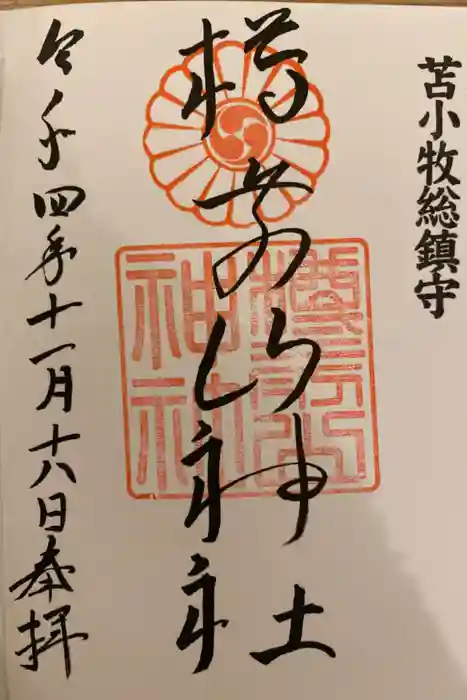 苫小牧総鎮守
樽前山神社
令和四年十一月十六日奉拝